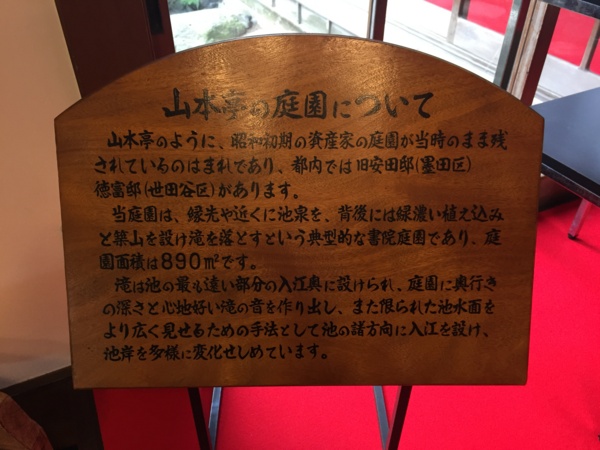 山本亭の庭園について
山本亭のように、昭和初期の資産家の庭園が当時のまま残
されているのはまれであり、都内では旧安田邸(墨田区)
徳富邸(世田谷区)があります。
当庭園は、縁先や近くに池泉を、背後には緑濃い植え込み
と築山を設け滝を落とすという典型的な書院庭園であり、庭
園面積は890㎡です。
滝は池の最も遠い部分の入江奥に設けられ、庭園に奥行き
の深さと心地好い滝の音を作り出し、また限られた池水面を
より広く見せるための手法として池の諸方向に入江を設け、
池岸を多様に変化せしめています。